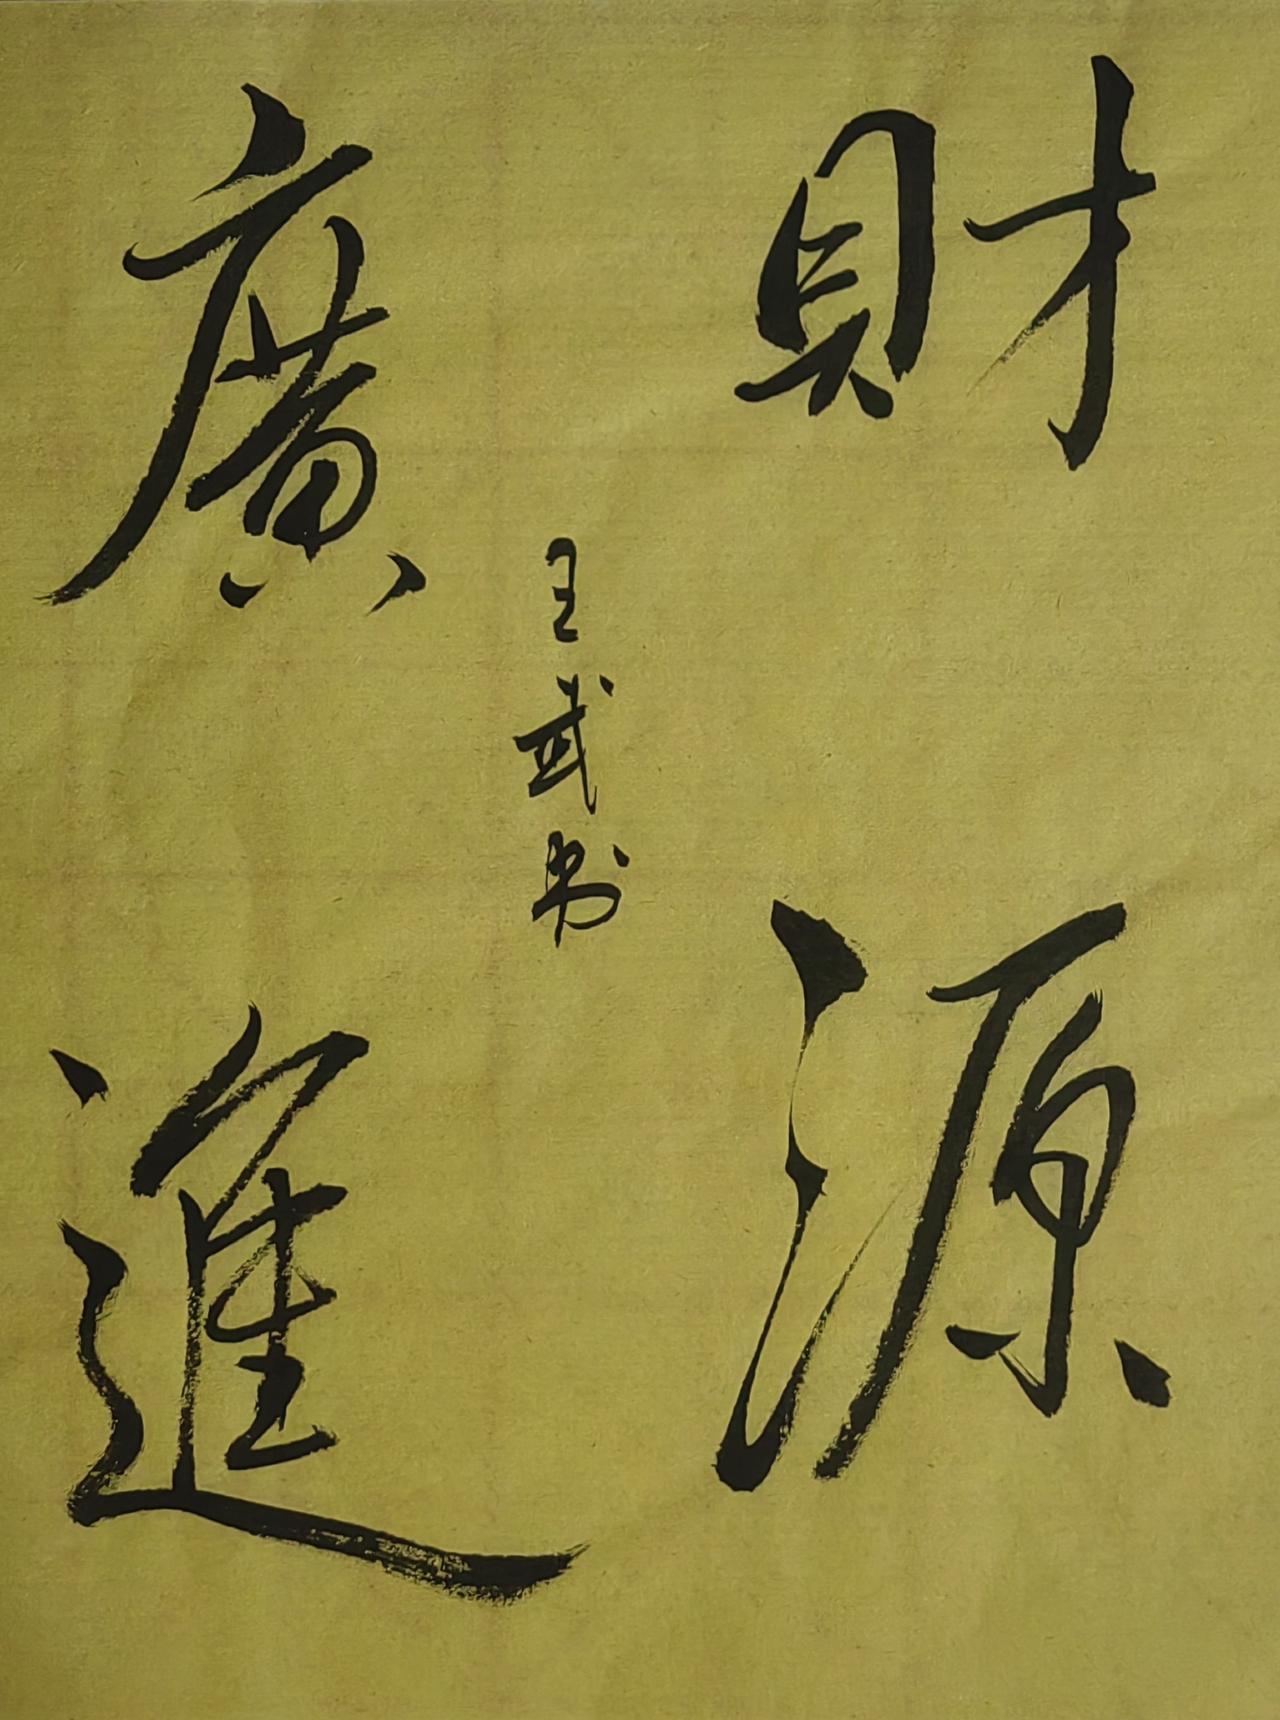 財源
廣進
王武书